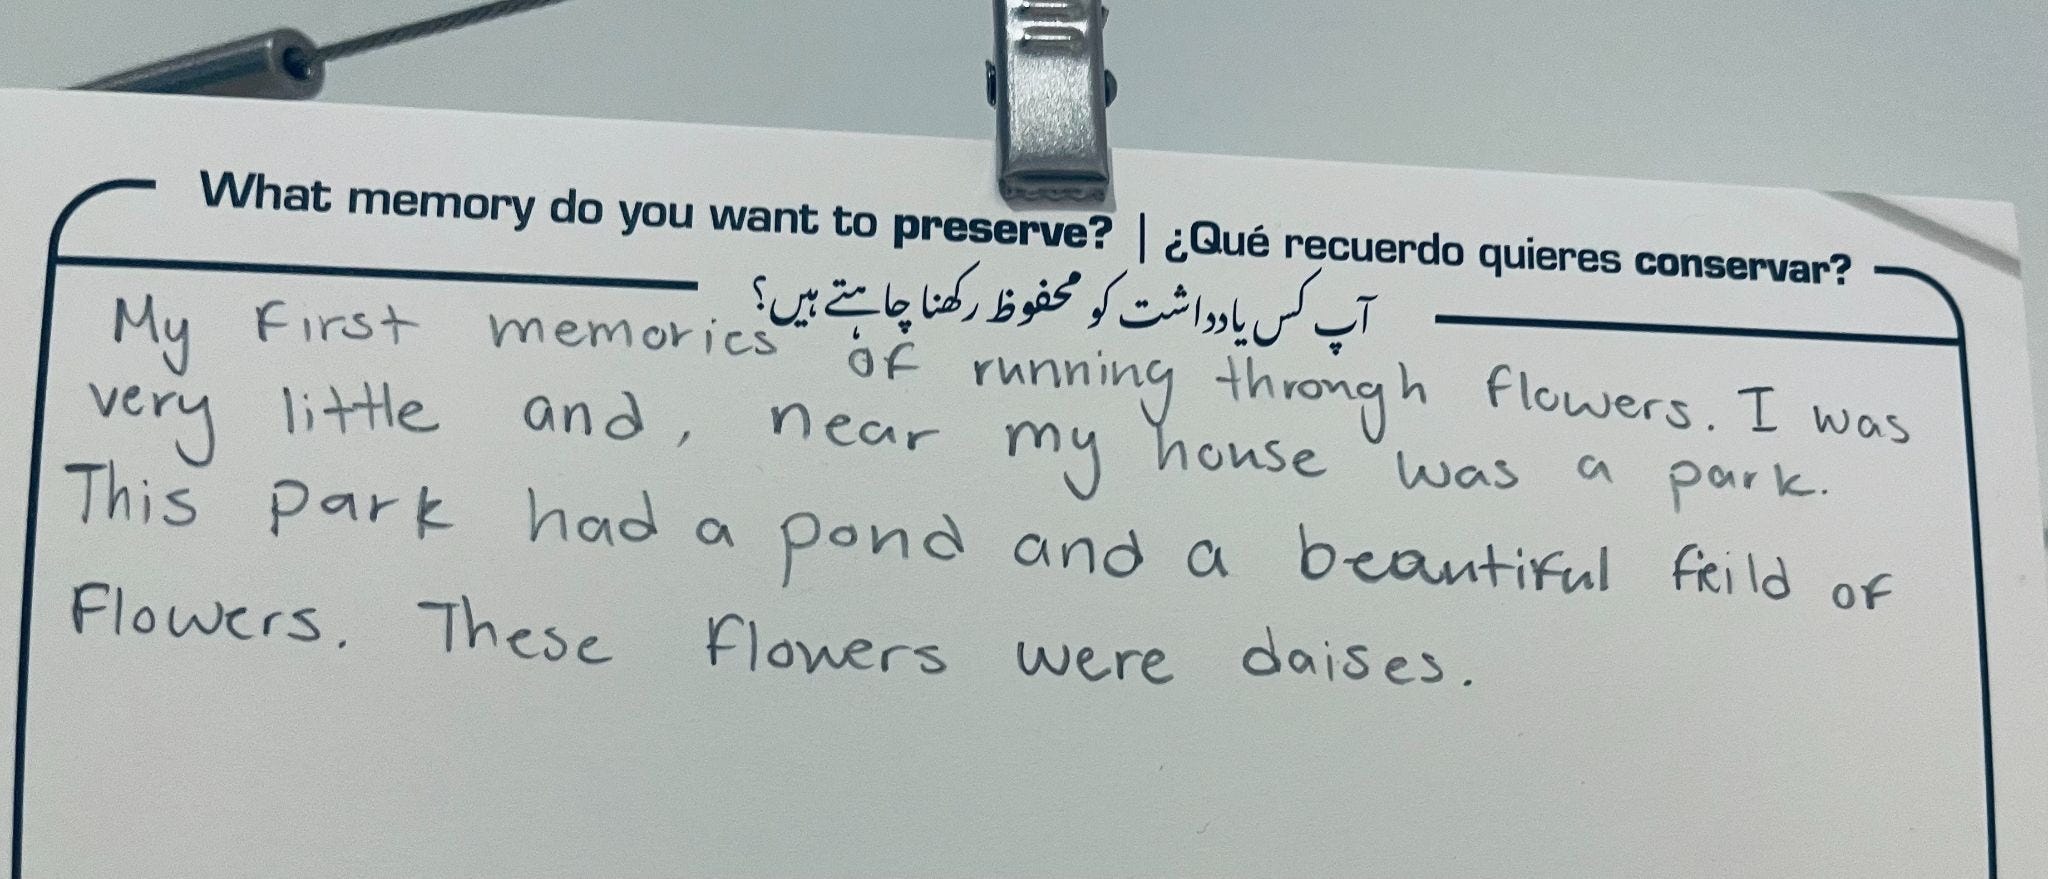 What memory do you want to preserve? | ¿Qué recuerdo quieres conservar?
آپ کس یادداشت کو محفوظ رکھنا چاہتے ہیں؟
My First memories of running through flowers. I was
very little and, near my house was a park.
This park had a pond and a beautiful feild of
Flowers. These flowers were daises.